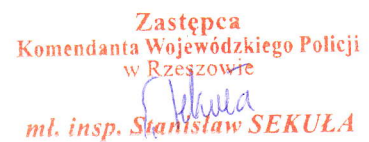 Zastępca
Komendanta Wojewódzkiego Policji
w Rzeszowie
mł. insp. Stanisław SEKUŁA